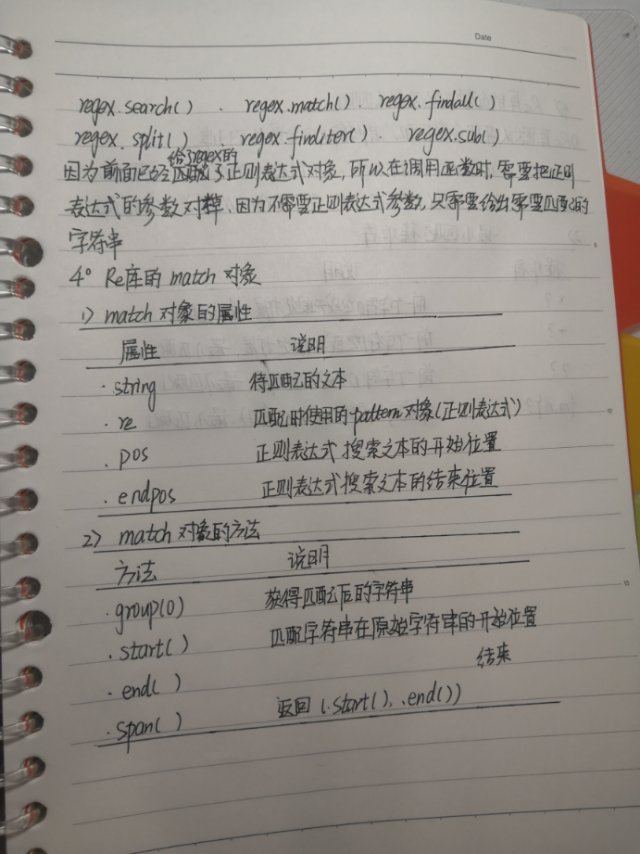 Date
regex.search() . regex.match() . regex.findall()
regex.split() . regex.finditer() . regex.sub()
给了regex的
因为前面已经匹配了正则表达式对象，所以在调用函数时，需要把正则
表达式的参数对掉，因为不需要正则表达式参数，只需要给出需要匹配的
字符串
4° Re库的 match 对象
1) match 对象的属性
属性 说明
.string 待匹配的文本
.re 匹配时使用的pattern对象(正则表达式)
.pos 正则表达式搜索文本的开始位置
.endpos 正则表达式搜索文本的结束位置
2) match 对象的方法
方法 说明
.group(0) 获得匹配后的字符串
.start() 匹配字符串在原始字符串的开始位置
.end() 结束
.span() 返回(.start(), .end())